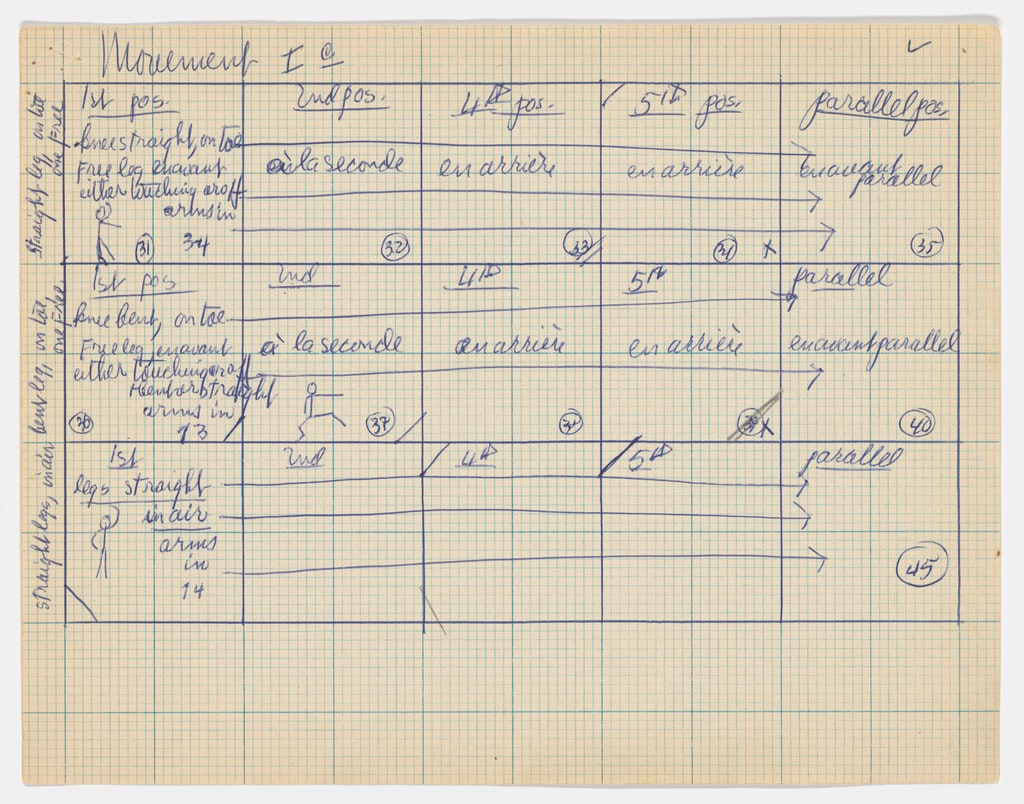 Movement I c
1st pos. 2nd pos. 4th pos. 5th pos. parallel pos.
Knee straight, on toe
Free leg en avant à la seconde en arrière en arrière en avant parallel
either touching or off
arms in
34
31 32 33 34 x 35
straight leg, on toe
one Free
1st pos 2nd 4th 5th parallel
Knee bent, on toe
Free leg, en avant à la seconde en arrière en arrière en avant parallel
either touching or off
bent or straight
arms in
13
36 37 39 x 40
bent leg, on toe
one Free
1st 2nd 4th 5th parallel
legs straight
in air
arms
in
14
45
straight legs, in air